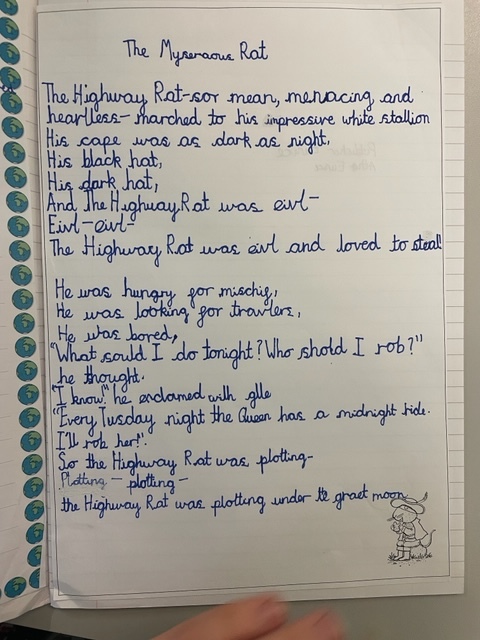 The Myseraous Rat
The Highway Rat-sor mean, menacing and
heartless- marched to his impressive white stallion
His cape was as dark as night,
His black hat,
His dark hat,
And The Highway Rat was eivl-
Eivl-eivl-
The Highway Rat was eivl and loved to steal!
He was hungry for mischif,
He was looking for travlers,
He was bored,
"What sould I do tonight? Who shold I rob?"
he thought.
"I know!" he exclamed with glle
"Every Tusday night the Queen has a midnight ride.
I'll rob her!".
So the Highway Rat was plotting-
Plotting - plotting-
the Highway Rat was plotting under the graet moon.